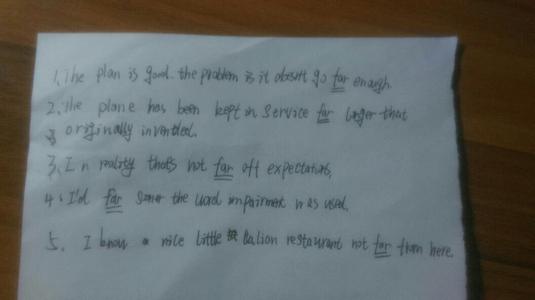 1. The plan is good. the problem is it doesn't go far enough.
2. The plane has been kept in service far longer that
originally invented.
3. In reality that's not far off expectations.
4. I'd far soner the word impairment was used.
5. I know a nice little Italion restaurant not far from here.